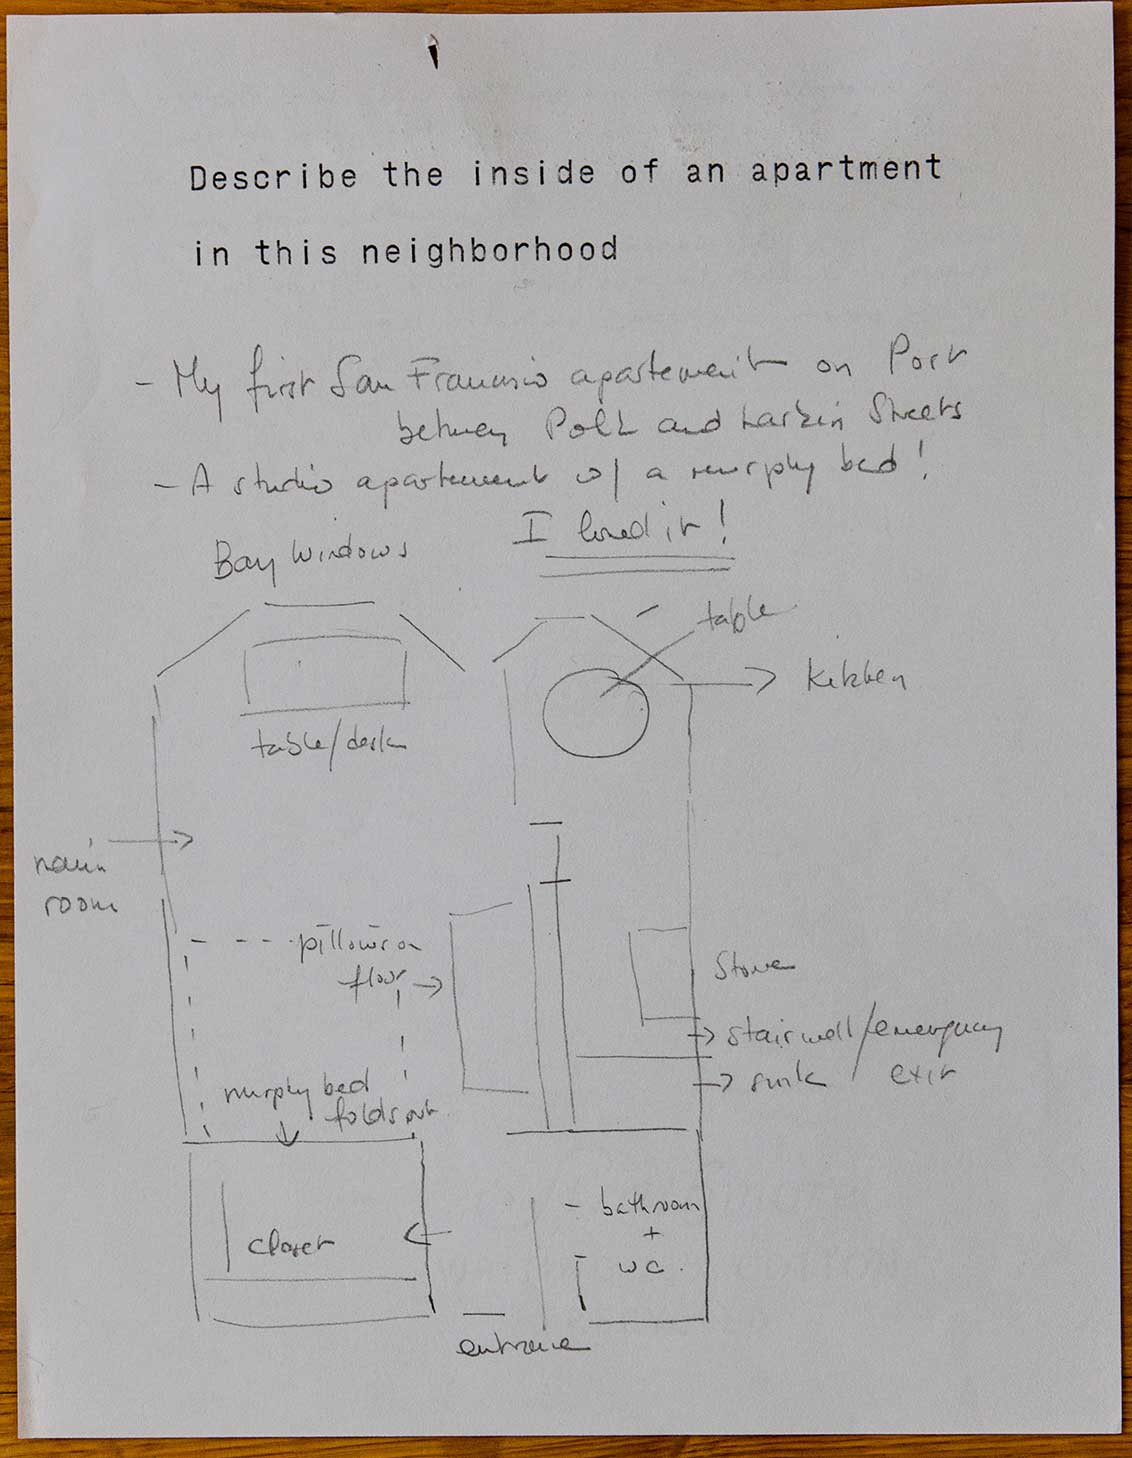 Describe the inside of an apartment
in this neighborhood
- My first San Francisco apartement on Port
between Polk and Larkin Streets
- A studio apartement w/ a murphy bed!
I loved it!
Bay Windows
table
kitchen
table/desk
main
room
pillows on
floor
Stove
stairwell/emergency
exit
sink
murphy bed
folds out
closet
- bathroom
+
WC.
entrance